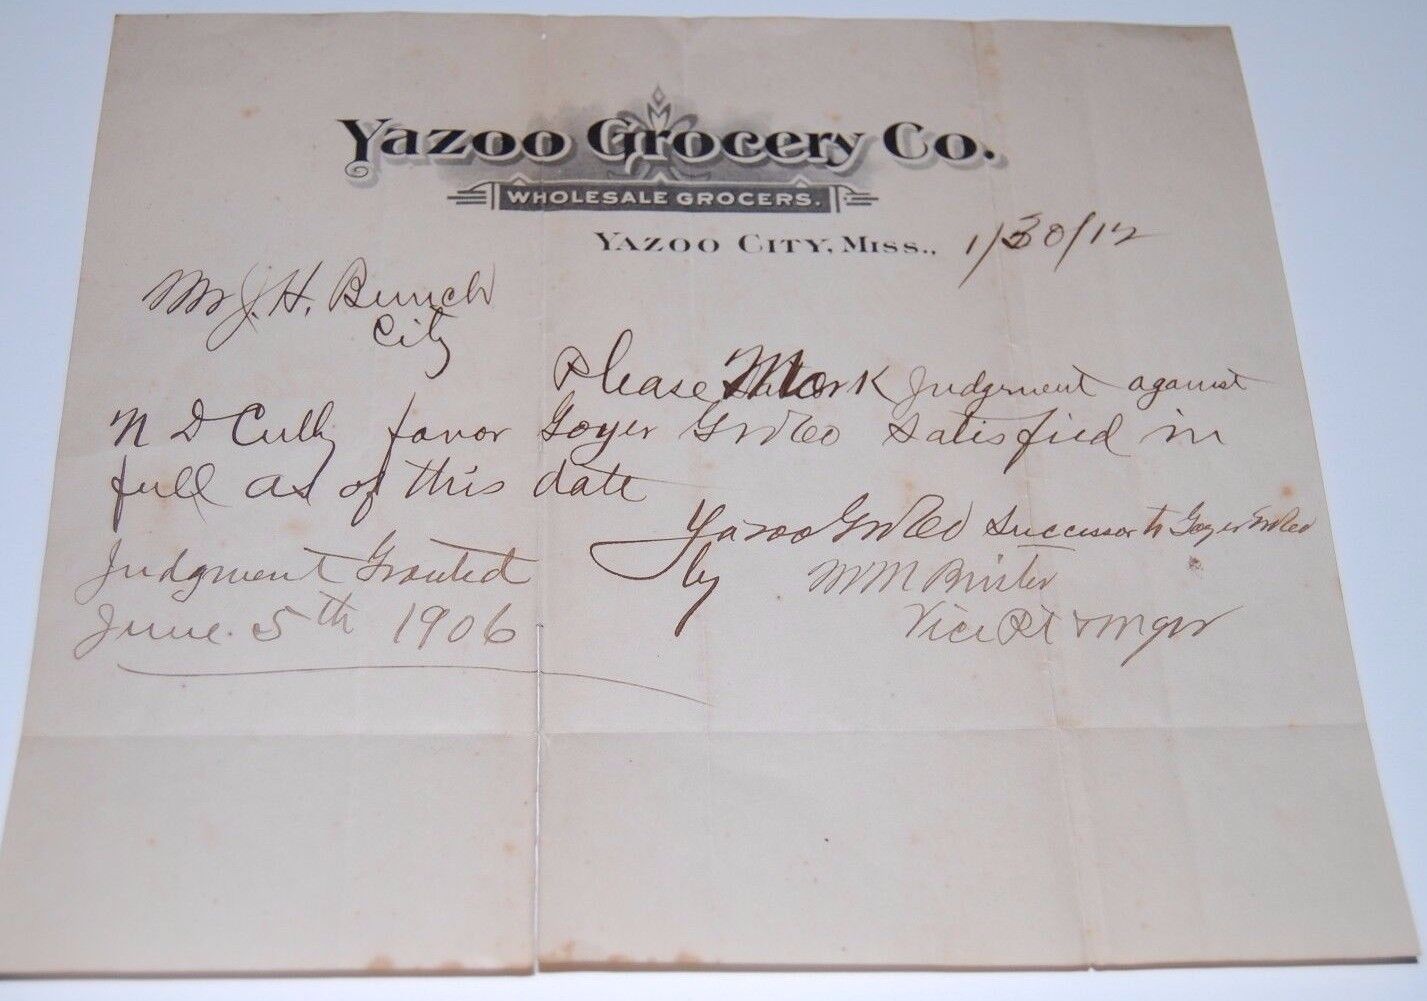 Yazoo Grocery Co.
WHOLESALE GROCERS.
YAZOO CITY, MISS., 1/30/12
Mr J. H. Bunch
City
Please Mark Judgment against
N D Cully favor Goyer Gro Co Satisfied in
full as of this date
Yazoo Gro Co Successor to Goyer Gro Co
by W M Brister
Vice Pt & Mgr
Judgment Granted
June 5th 1906